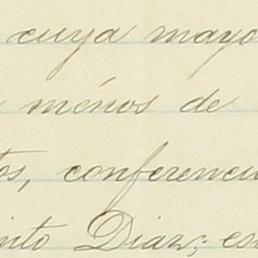 cuya mayo
ménos de
os, conferenci
into Diaz; es